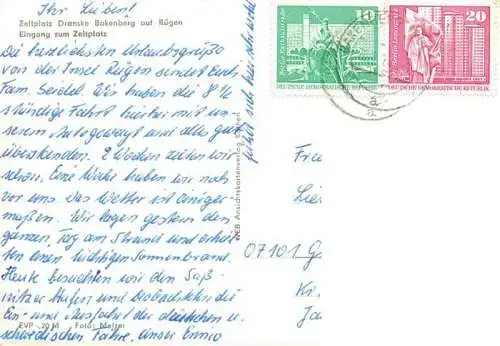 Ihr Lieben!
Zeltplatz Dranske Bakenberg auf Rügen
Eingang zum Zeltplatz
Die herzlichsten Urlaubsgrüße
von der Insel Rügen sendet Euch
Fam. Seidel. Wir haben die 8 ½
stündige Fahrt hierher mit un-
serem Autogespann und alles gut
überstanden. 2 Wochen zelten wir
schon. Eine Woche haben wir noch
vor uns. Das Wetter ist einiger-
maßen. Wir lagen gestern den
ganzen Tag am Strand und erhiel-
ten einen tüchtigen Sonnenbrand.
Heute besuchten wir den Saß-
nitzer Hafen und beobachteten die
Ein- und Ausfahrt der deutschen u.
schwedischen Fähre. Unser Ennio
EVP -,20 M Foto: Melzer
VEB Ansichtskartenverlag
10
DEUTSCHE DEMOKRATISCHE REPUBLIK
20
DEUTSCHE DEMOKRATISCHE REPUBLIK
Fr
Lie
07101 G
Kr.
Ja